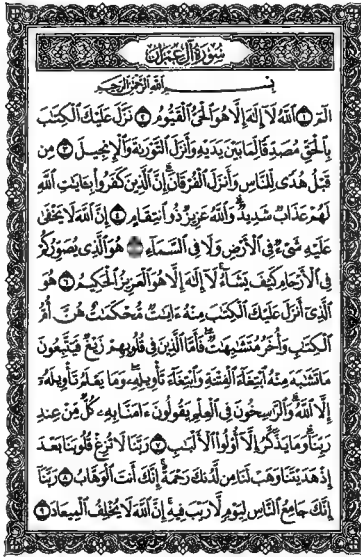 سُورَةُ آلِ عِمْرَانَ
بِسْمِ ٱللَّهِ ٱلرَّحْمَٰنِ ٱلرَّحِيمِ
الٓمٓ ١ ٱللَّهُ لَآ إِلَٰهَ إِلَّا هُوَ ٱلْحَىُّ ٱلْقَيُّومُ ٢ نَزَّلَ عَلَيْكَ ٱلْكِتَٰبَ
بِٱلْحَقِّ مُصَدِّقًا لِّمَا بَيْنَ يَدَيْهِ وَأَنزَلَ ٱلتَّوْرَىٰةَ وَٱلْإِنجِيلَ ٣ مِن
قَبْلُ هُدًى لِّلنَّاسِ وَأَنزَلَ ٱلْفُرْقَانَ إِنَّ ٱلَّذِينَ كَفَرُوا۟ بِـَٔايَٰتِ ٱللَّهِ
لَهُمْ عَذَابٌ شَدِيدٌ وَٱللَّهُ عَزِيزٌ ذُو ٱنتِقَامٍ ٤ إِنَّ ٱللَّهَ لَا يَخْفَىٰ
عَلَيْهِ شَىْءٌ فِى ٱلْأَرْضِ وَلَا فِى ٱلسَّمَآءِ هُوَ ٱلَّذِى يُصَوِّرُكُمْ
فِى ٱلْأَرْحَامِ كَيْفَ يَشَآءُ لَآ إِلَٰهَ إِلَّا هُوَ ٱلْعَزِيزُ ٱلْحَكِيمُ ٦ هُوَ
ٱلَّذِىٓ أَنزَلَ عَلَيْكَ ٱلْكِتَٰبَ مِنْهُ ءَايَٰتٌ مُّحْكَمَٰتٌ هُنَّ أُمُّ
ٱلْكِتَٰبِ وَأُخَرُ مُتَشَٰبِهَٰتٌ فَأَمَّا ٱلَّذِينَ فِى قُلُوبِهِمْ زَيْغٌ فَيَتَّبِعُونَ
مَا تَشَٰبَهَ مِنْهُ ٱبْتِغَآءَ ٱلْفِتْنَةِ وَٱبْتِغَآءَ تَأْوِيلِهِۦ وَمَا يَعْلَمُ تَأْوِيلَهُۥٓ
إِلَّا ٱللَّهُ وَٱلرَّٰسِخُونَ فِى ٱلْعِلْمِ يَقُولُونَ ءَامَنَّا بِهِۦ كُلٌّ مِّنْ عِندِ
رَبِّنَا وَمَا يَذَّكَّرُ إِلَّآ أُو۟لُوا۟ ٱلْأَلْبَٰبِ ٧ رَبَّنَا لَا تُزِغْ قُلُوبَنَا بَعْدَ
إِذْ هَدَيْتَنَا وَهَبْ لَنَا مِن لَّدُنكَ رَحْمَةً إِنَّكَ أَنتَ ٱلْوَهَّابُ ٨ رَبَّنَآ
إِنَّكَ جَامِعُ ٱلنَّاسِ لِيَوْمٍ لَّا رَيْبَ فِيهِ إِنَّ ٱللَّهَ لَا يُخْلِفُ ٱلْمِيعَادَ ٩